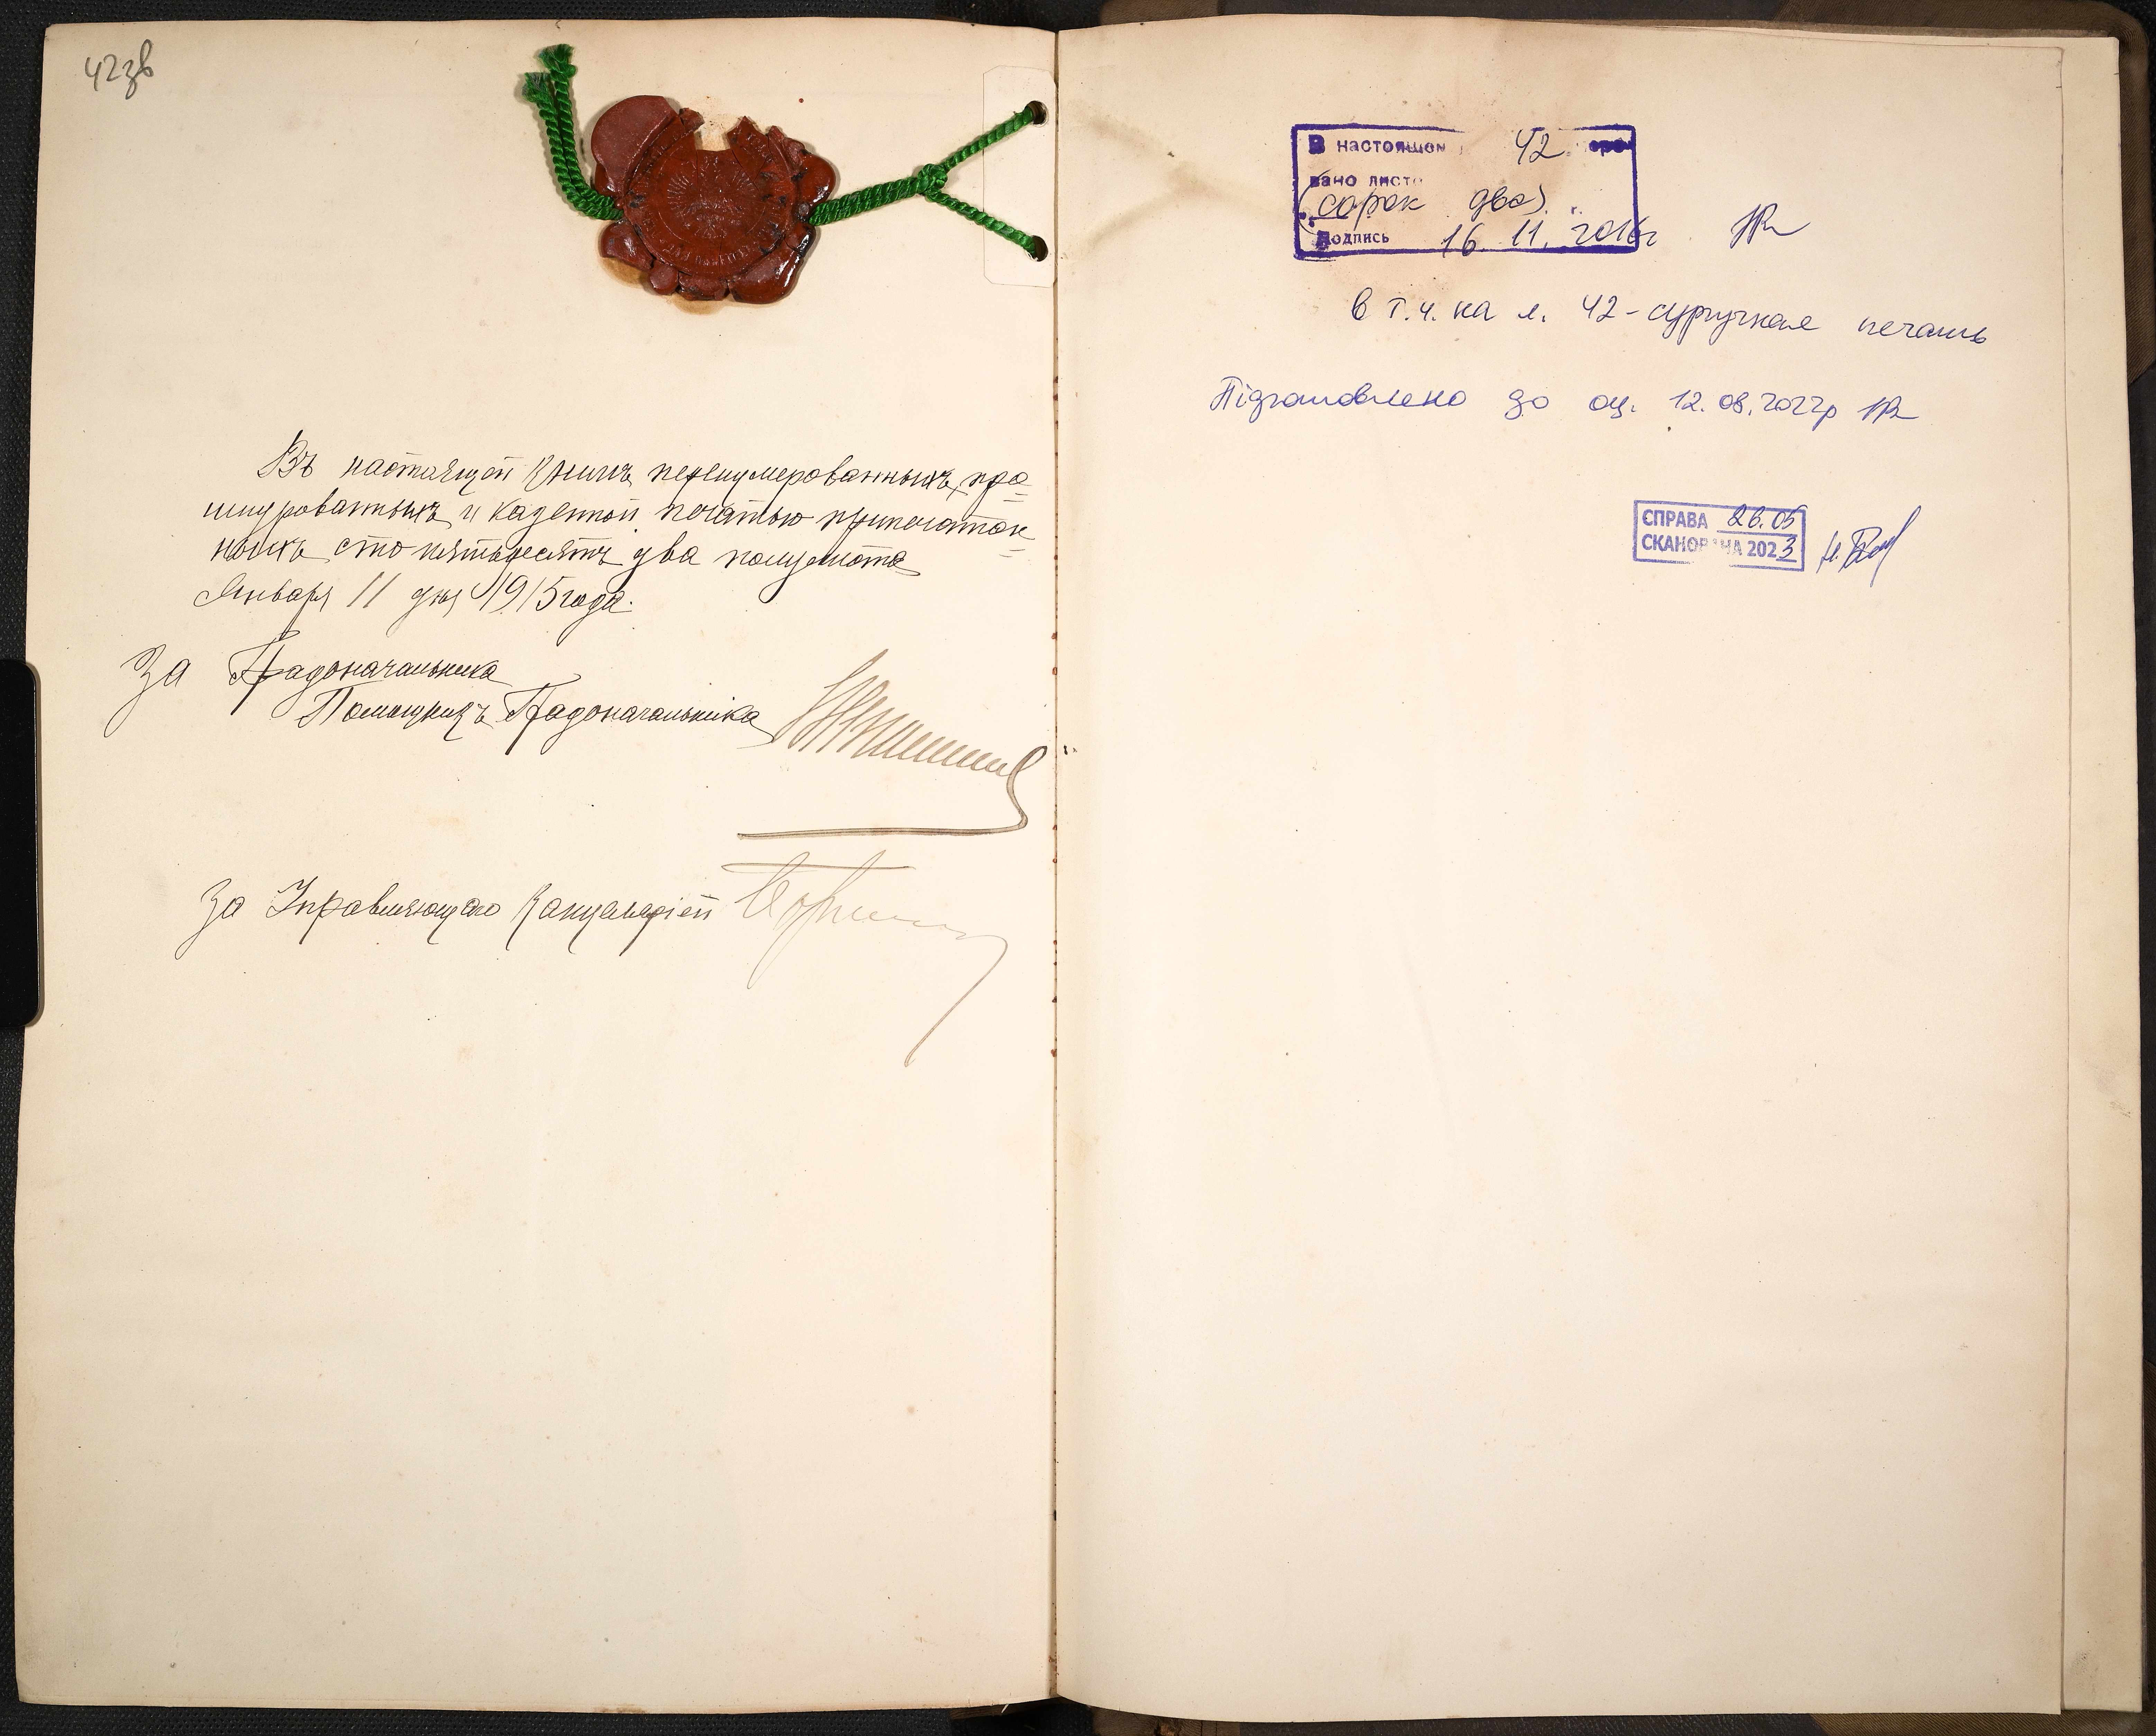 42зв
Въ настоящей книгѣ перенумерованныхъ, про=
шнурованныхъ и казенной печатью припечатан=
ныхъ сто пятьдесятъ два полулиста
Января 11 дня 1915 года.
За Градоначальника
Помощникъ Градоначальника
За Управляющаго Канцеляріей
В настоящем 42 про
вано листо
(сорок два)
Подпись 16. 11. 2016г
в т.ч. на л. 42 - сургучная печать
Підготовлено до оц. 12.08.2022р
СПРАВА 26.05
СКАНОВАНА 2023